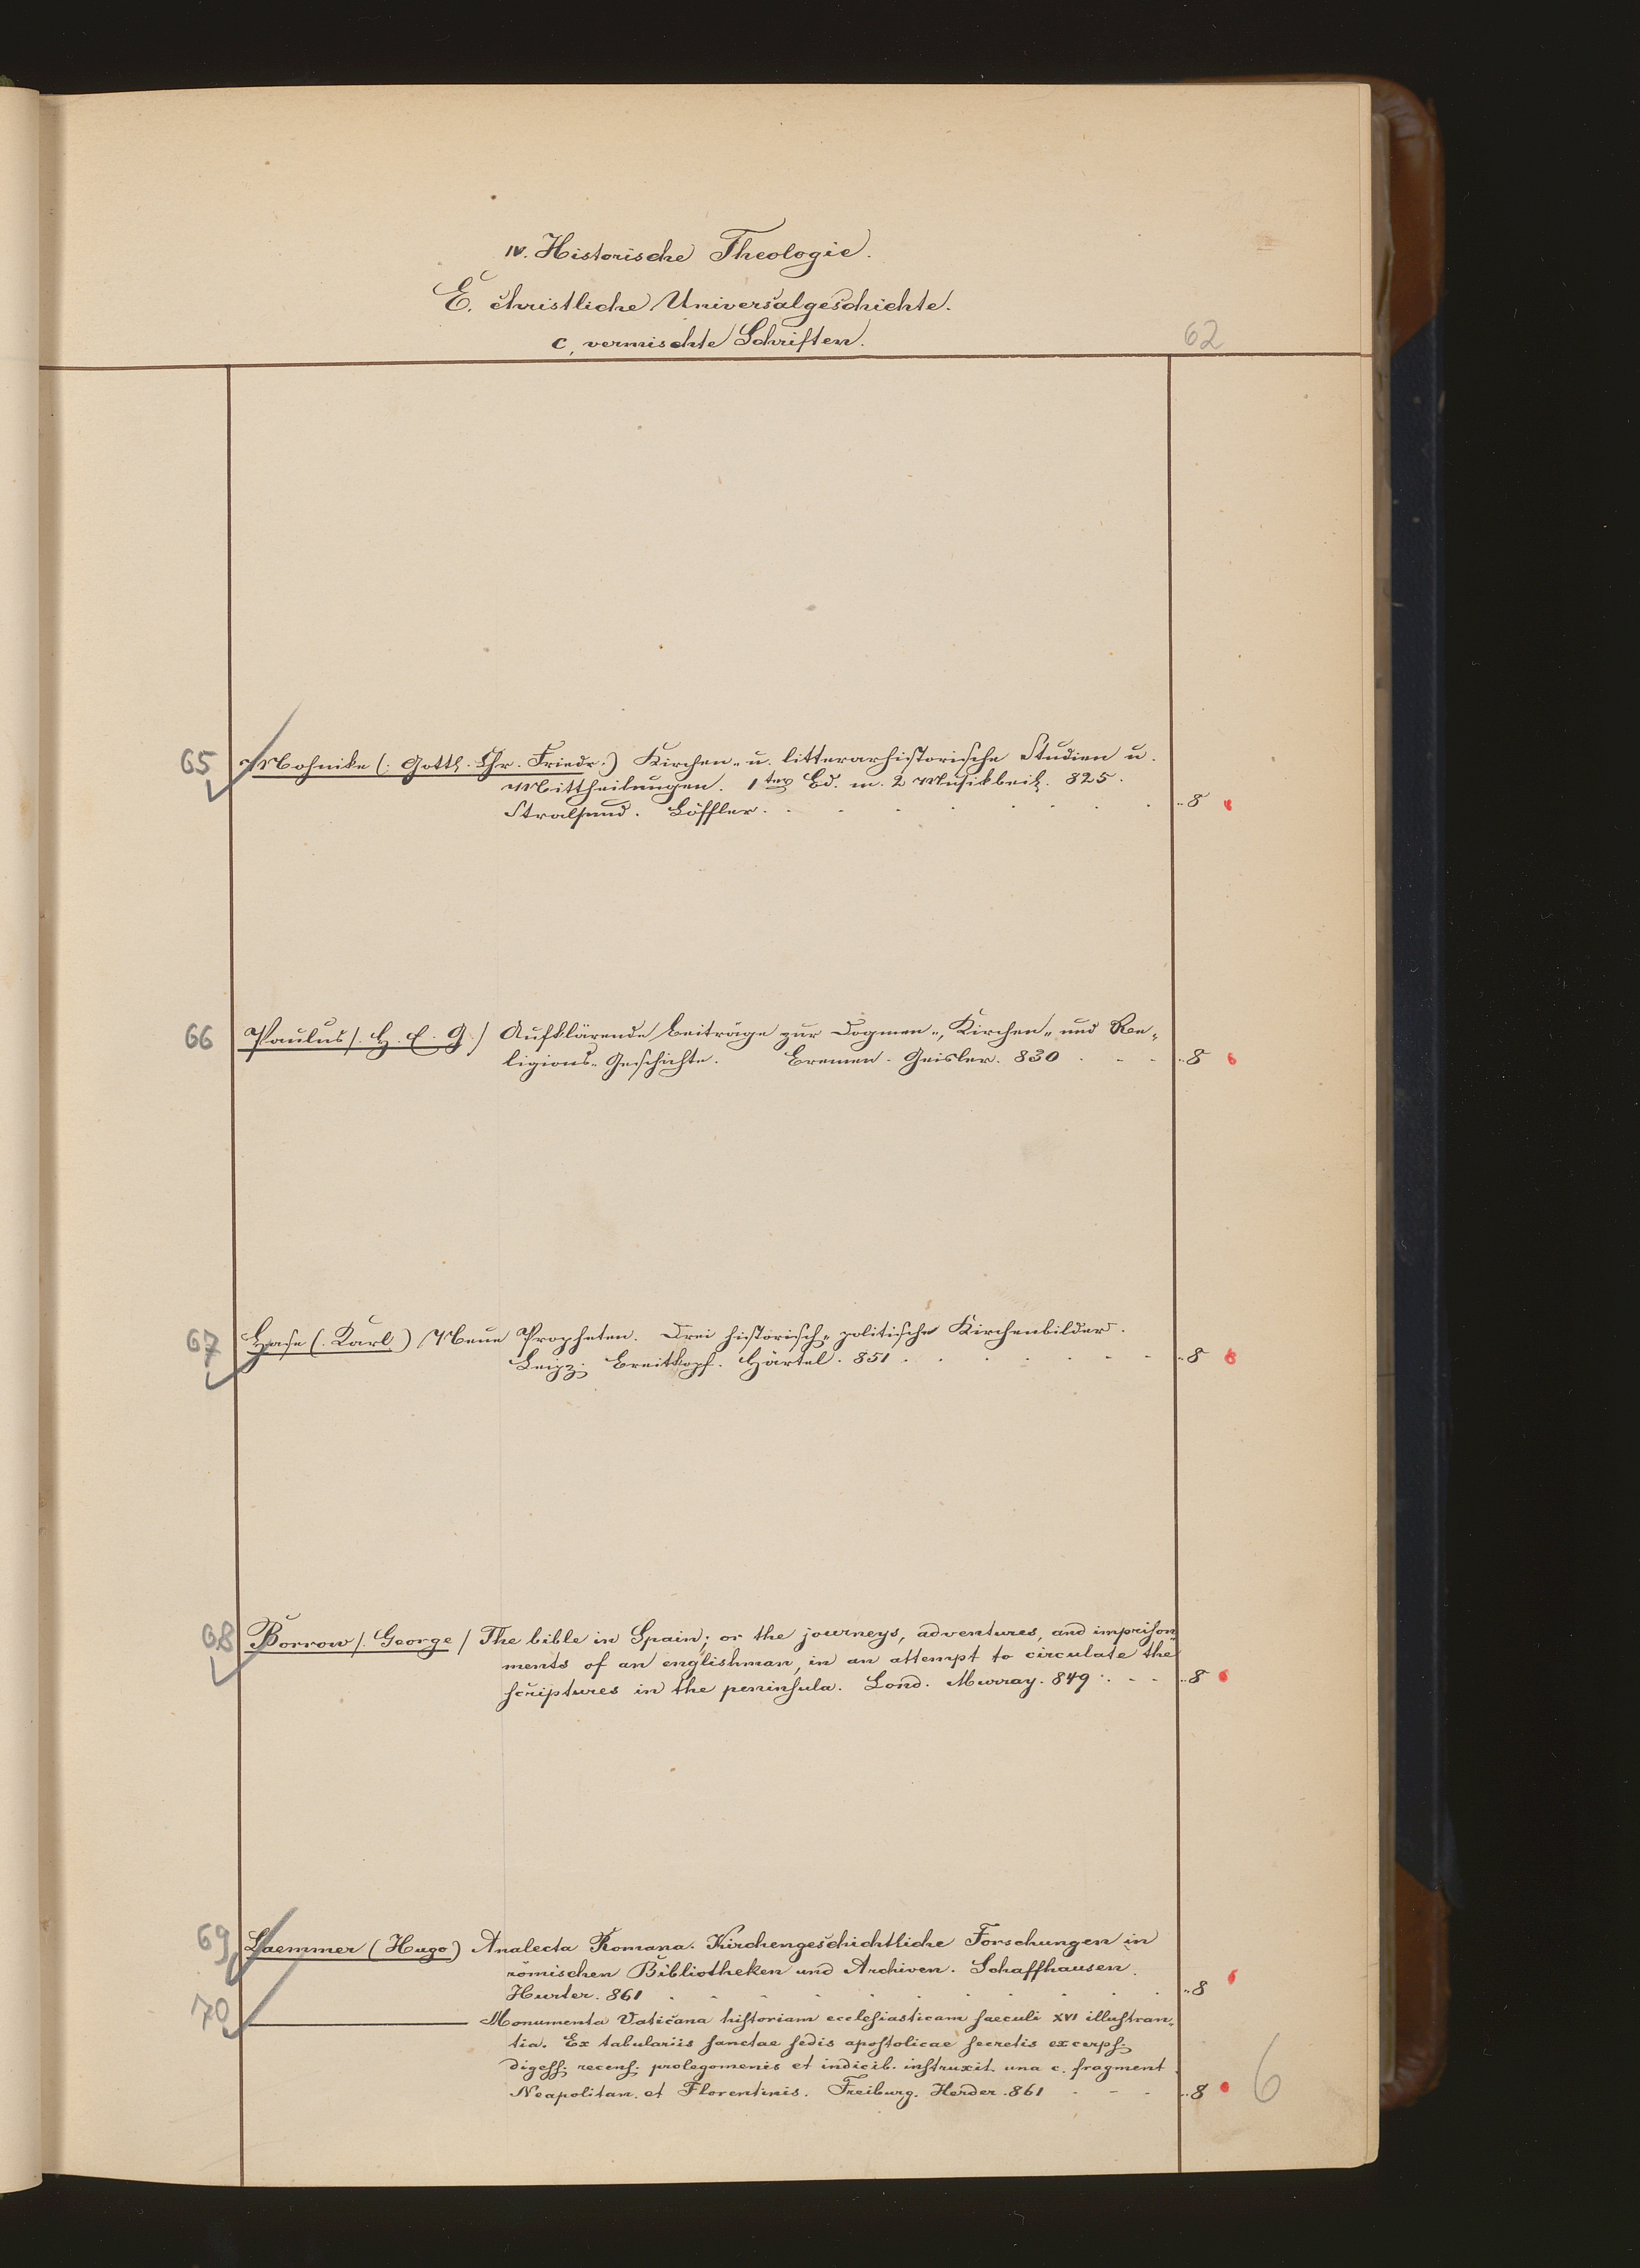 IV. Historische Theologie.
E. christliche Universalgeschichte.
c, vermischte Schriften.
62
65 Mohnike (: Gottl. Chr. Friedr.) Kirchen- u. litterarhistorische Studien u.
Mittheilungen. 1ter Bd. m. 2 Musikbeil. 825.
Stralsund. Löffler. . . . . . . 8
66 Paulus /. H. E. G. / Aufklärende Beiträge zur Dogmen-, Kirchen- und Re-
ligions-Geschichte. Bremen. Geisler. 830 . - - 8
67 Hase (. Karl.) Neue Propheten. Drei historisch-politische Kirchenbilder.
Leipz. Breitkopf. Härtel. 851 . . . . . - - 8
68 Borrow /. George / The bible in Spain; or the journeys, adventures, and imprison-
ments of an englishman, in an attempt to circulate the
scriptures in the peninsula. Lond. Murray. 849 . - - 8
69 Laemmer (Hugo) Analecta Romana. Kirchengeschichtliche Forschungen in
römischen Bibliotheken und Archiven. Schaffhausen.
Hurter. 861 . . . . . . . . 8
70 ——— Monumenta Vaticana historiam ecclesiasticam saeculi XVI illustran-
tia. Ex tabulariis sanctae sedis apostolicae secretis excerps.
digess. recens. prolegomenis et indicib. instruxit. una c. fragment.
Neapolitan. et Florentinis. Freiburg. Herder. 861 - - . 8
6